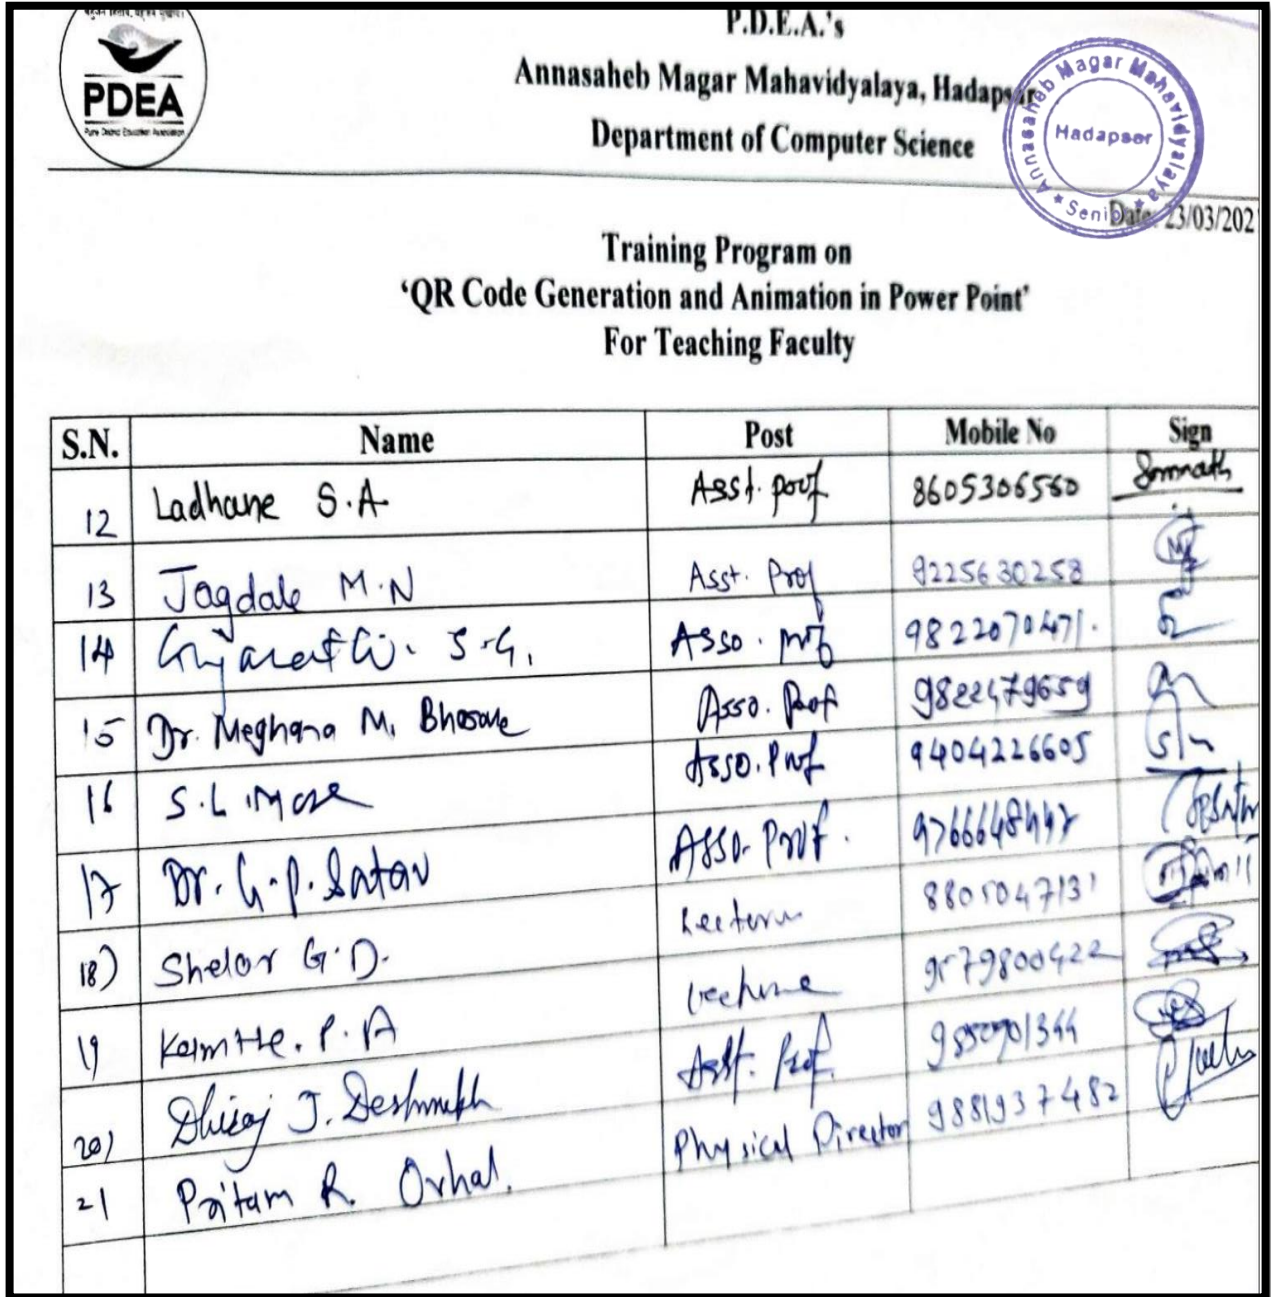 बहुजन हिताय, बहुजन सुखाय।
PDEA
Pune District Education Association
P.D.E.A.'s
Annasaheb Magar Mahavidyalaya, Hadapsar
Department of Computer Science
Annasaheb Magar Mahavidyalaya
Hadapsar
Senior
Date: 23/03/202
Training Program on
'QR Code Generation and Animation in Power Point'
For Teaching Faculty
S.N. Name Post Mobile No Sign
12 Ladhane S.A Asst. prof 8605306560 Somnath
13 Jagdale M.N Asst. Prof 9225630258
14 S.G. Asso. prof 9822070471.
15 Dr. Meghana M. Bhosale Asso. Prof 9822479659
16 S.L. More Asso. Prof 9404226605
17 Dr. G.P. Satav Asso. Prof.
18) Shelar G.D. Lecturer 8805047131
19 Kamthe. P. A Lecturer 9579800422
20) Dhiraj J. Deshmukh Asst. Prof. 9850901344
21 Pritam R. Ovhal. Physical Director 9881937482